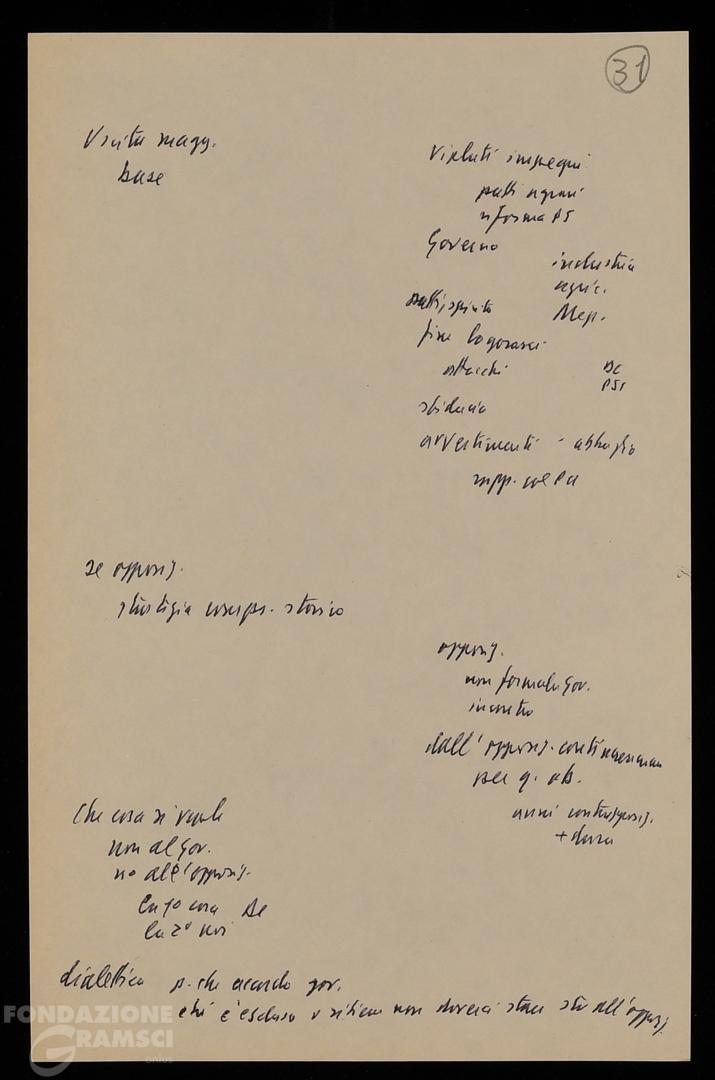 31
Uscita magg.
base
Violati impegni
patti agrari
riforma PS
Governo
industria
agric.
patti, spirito
Mep.
fine logorarci
attacchi
DC
PSI
sfiducia
avvertimenti -
rapp. col
se opposiz.
strategia comprom. storico
opposiz.
non formula Gov.
incontro
dall' opposiz.
per q. ob.
anni contrapposiz.
+ dura
Che cosa si vuole
non al Gov.
no all'opposiz.
La 1ª cosa DC
la 2ª noi
dialettica p. che accordo gov.
chi è escluso o ritiene non doverci stare sta all'opposiz.
FONDAZIONE
GRAMSCI
onlus